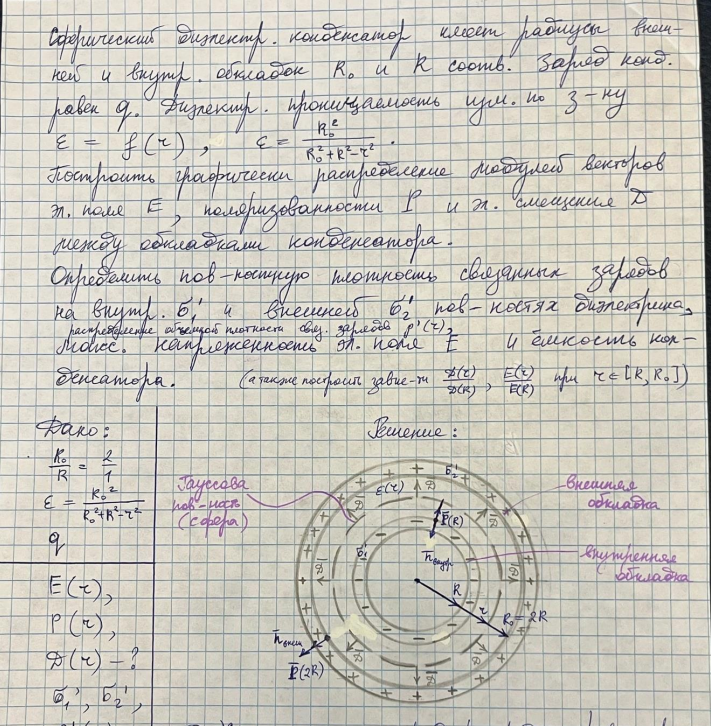 Сферический диэлектр. конденсатор имеет радиусы внеш-
ней и внутр. обкладок R₀ и R соотв. Заряд конд.
равен q. Диэлектр. проницаемость изм. по з-ну
ε = f(r), ε = R₀²/(R₀²+R²-r²).
Построить графически распределение модулей векторов
эл. поля E, поляризованности P и эл. смещения D
между обкладками конденсатора.
Определить пов-ностную плотность связанных зарядов
на внутр. σ₁' и внешней σ₂' пов-ностях диэлектрика,
распределение объемной плотности связ. зарядов ρ'(r),
макс. напряженность эл. поля E и ёмкость кон-
денсатора. (а также построить завис-ти D(r)/D(R), E(r)/E(R) при r∈[R, R₀])
Дано:
R₀/R = 2/1
ε = R₀²/(R₀²+R²-r²)
q
E(r),
P(r),
D(r) - ?
σ₁', σ₂',
Решение:
Гауссова
пов-ность
(сфера)
E(r)
σ₂'
внешняя
обкладка
P̄(R)
σ₁'
n̄внутр
внутренняя
обкладка
R
r
R₀=2R
n̄внеш
P̄(2R)
D̄
D̄
D̄
D̄
D̄
D̄
D̄
D̄